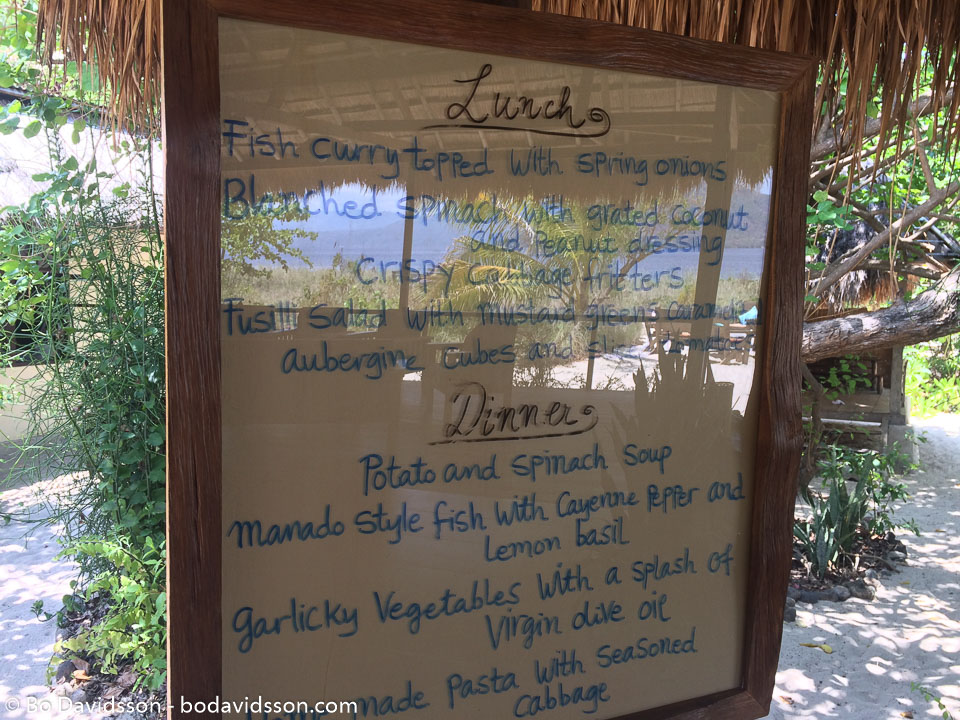 Lunch
Fish curry topped with spring onions
Blanched spinach with grated coconut
and Peanut dressing
Crispy Cabbage fritters
Fusilli salad with mustard greens caramelized
aubergine cubes and
Dinner
Potato and Spinach Soup
Manado Style fish with Cayenne Pepper and
Lemon basil
Garlicky Vegetables with a splash of
Virgin olive oil
Home made Pasta with Seasoned
Cabbage
© Bo Davidsson - bodavidsson.com